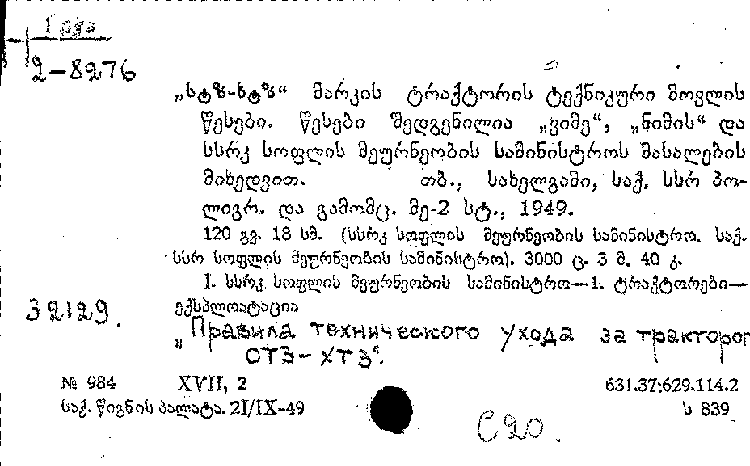 1 ცალ
2-8276
„სტზ-ხტზ“ მარკის ტრაქტორის ტექნიკური მოვლის
წესები. წესები შედგენილია „ვიმე“, „ნიმის“ და
სსრკ სოფლის მეურნეობის სამინისტროს მასალების
მიხედვით. თბ., სახელგამი, საქ. სსრ პო-
ლიგრ. და გამომც. მე-2 სტ., 1949.
120 გვ. 18 სმ. (სსრკ სოფლის მეურნეობის სამინისტრო. საქ.
სსრ სოფლის მეურნეობის სამინისტრო). 3000 ც. 3 მ. 40 კ.
I. სსრკ. სოფლის მეურნეობის სამინისტრო—1. ტრაქტორები—
ექსპლოატაცია
32129.
„Правила технического ухода за трактором
СТЗ-ХТЗ“.
№ 984 XVII, 2 631.37:629.114.2
საქ. წიგნის პალატა. 21/IX-49 ს 839
С20.